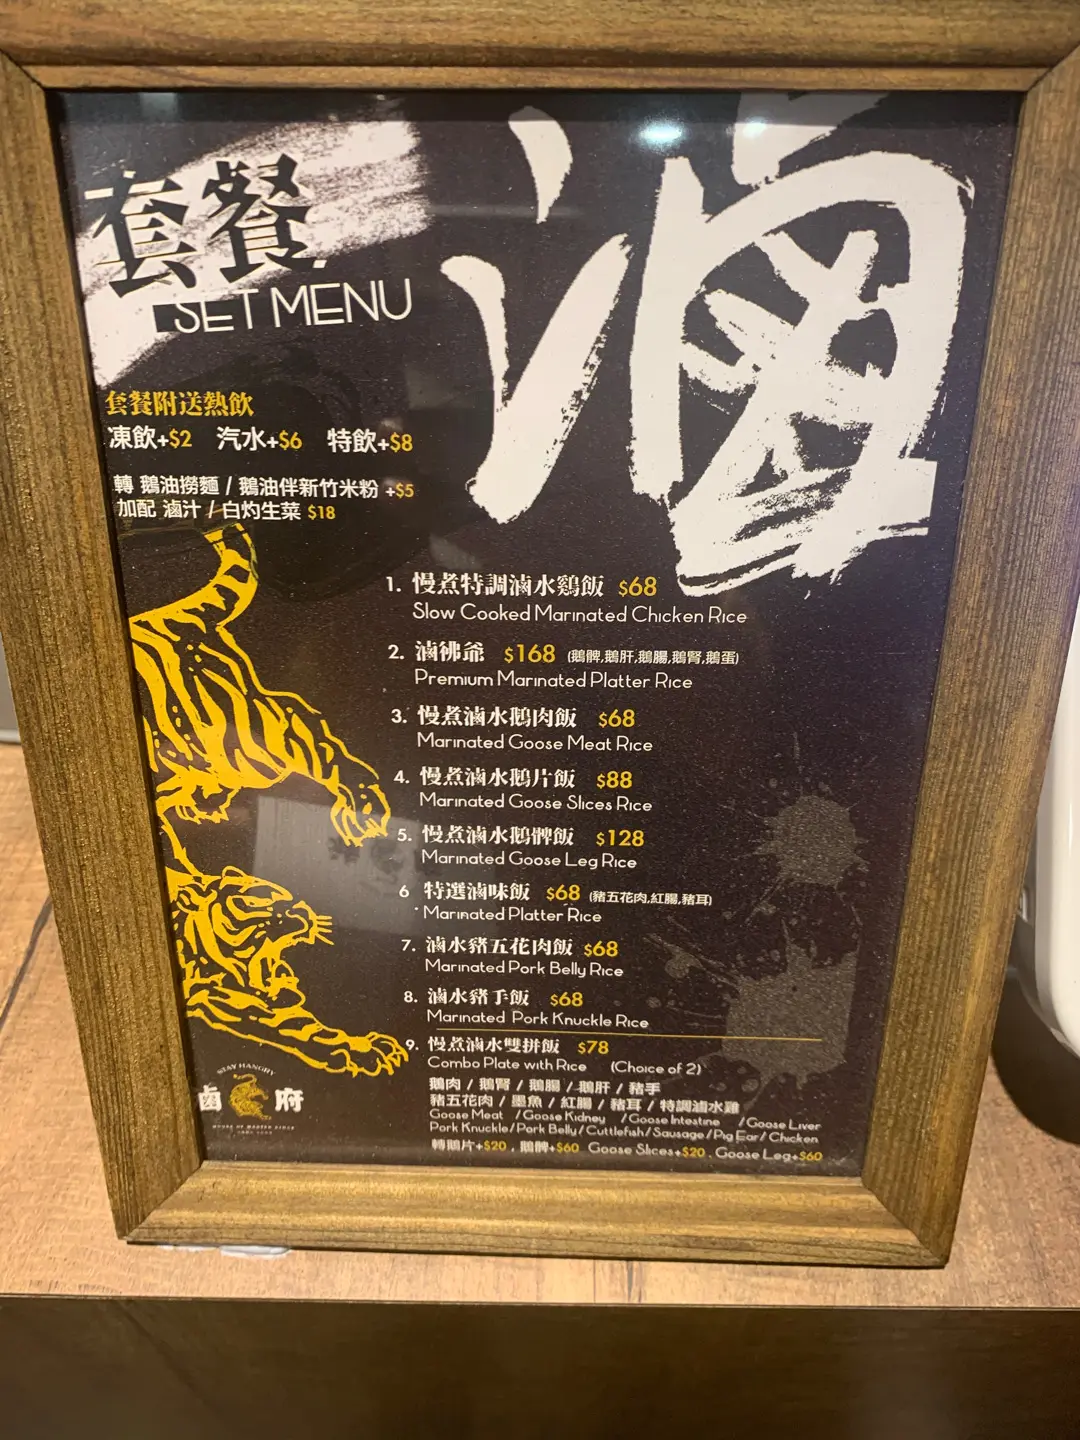 滷
套餐
SET MENU
套餐附送熱飲
凍飲+$2 汽水+$6 特飲+$8
轉 鵝油撈麵 / 鵝油伴新竹米粉 +$5
加配 滷汁 / 白灼生菜 $18
1. 慢煮特調滷水鷄飯 $68
Slow Cooked Marinated Chicken Rice
2. 滷彿爺 $168 (鵝髀,鵝肝,鵝腸,鵝腎,鵝蛋)
Premium Marinated Platter Rice
3. 慢煮滷水鵝肉飯 $68
Marinated Goose Meat Rice
4. 慢煮滷水鵝片飯 $88
Marinated Goose Slices Rice
5. 慢煮滷水鵝髀飯 $128
Marinated Goose Leg Rice
6 特選滷味飯 $68 (豬五花肉,紅腸,豬耳)
Marinated Platter Rice
7. 滷水豬五花肉飯 $68
Marinated Pork Belly Rice
8. 滷水豬手飯 $68
Marinated Pork Knuckle Rice
9. 慢煮滷水雙拼飯 $78
Combo Plate with Rice (Choice of 2)
鵝肉 / 鵝腎 / 鵝腸 / 鵝肝 / 豬手
豬五花肉 / 墨魚 / 紅腸 / 豬耳 / 特調滷水雞
Goose Meat /Goose Kidney /Goose Intestine /Goose Liver
Pork Knuckle/Pork Belly/Cuttlefish/Sausage/Pig Ear/Chicken
轉鵝片+$20 , 鵝髀+$60 Goose Slices+$20 , Goose Leg+$60
STAY HANGRY
鹵府